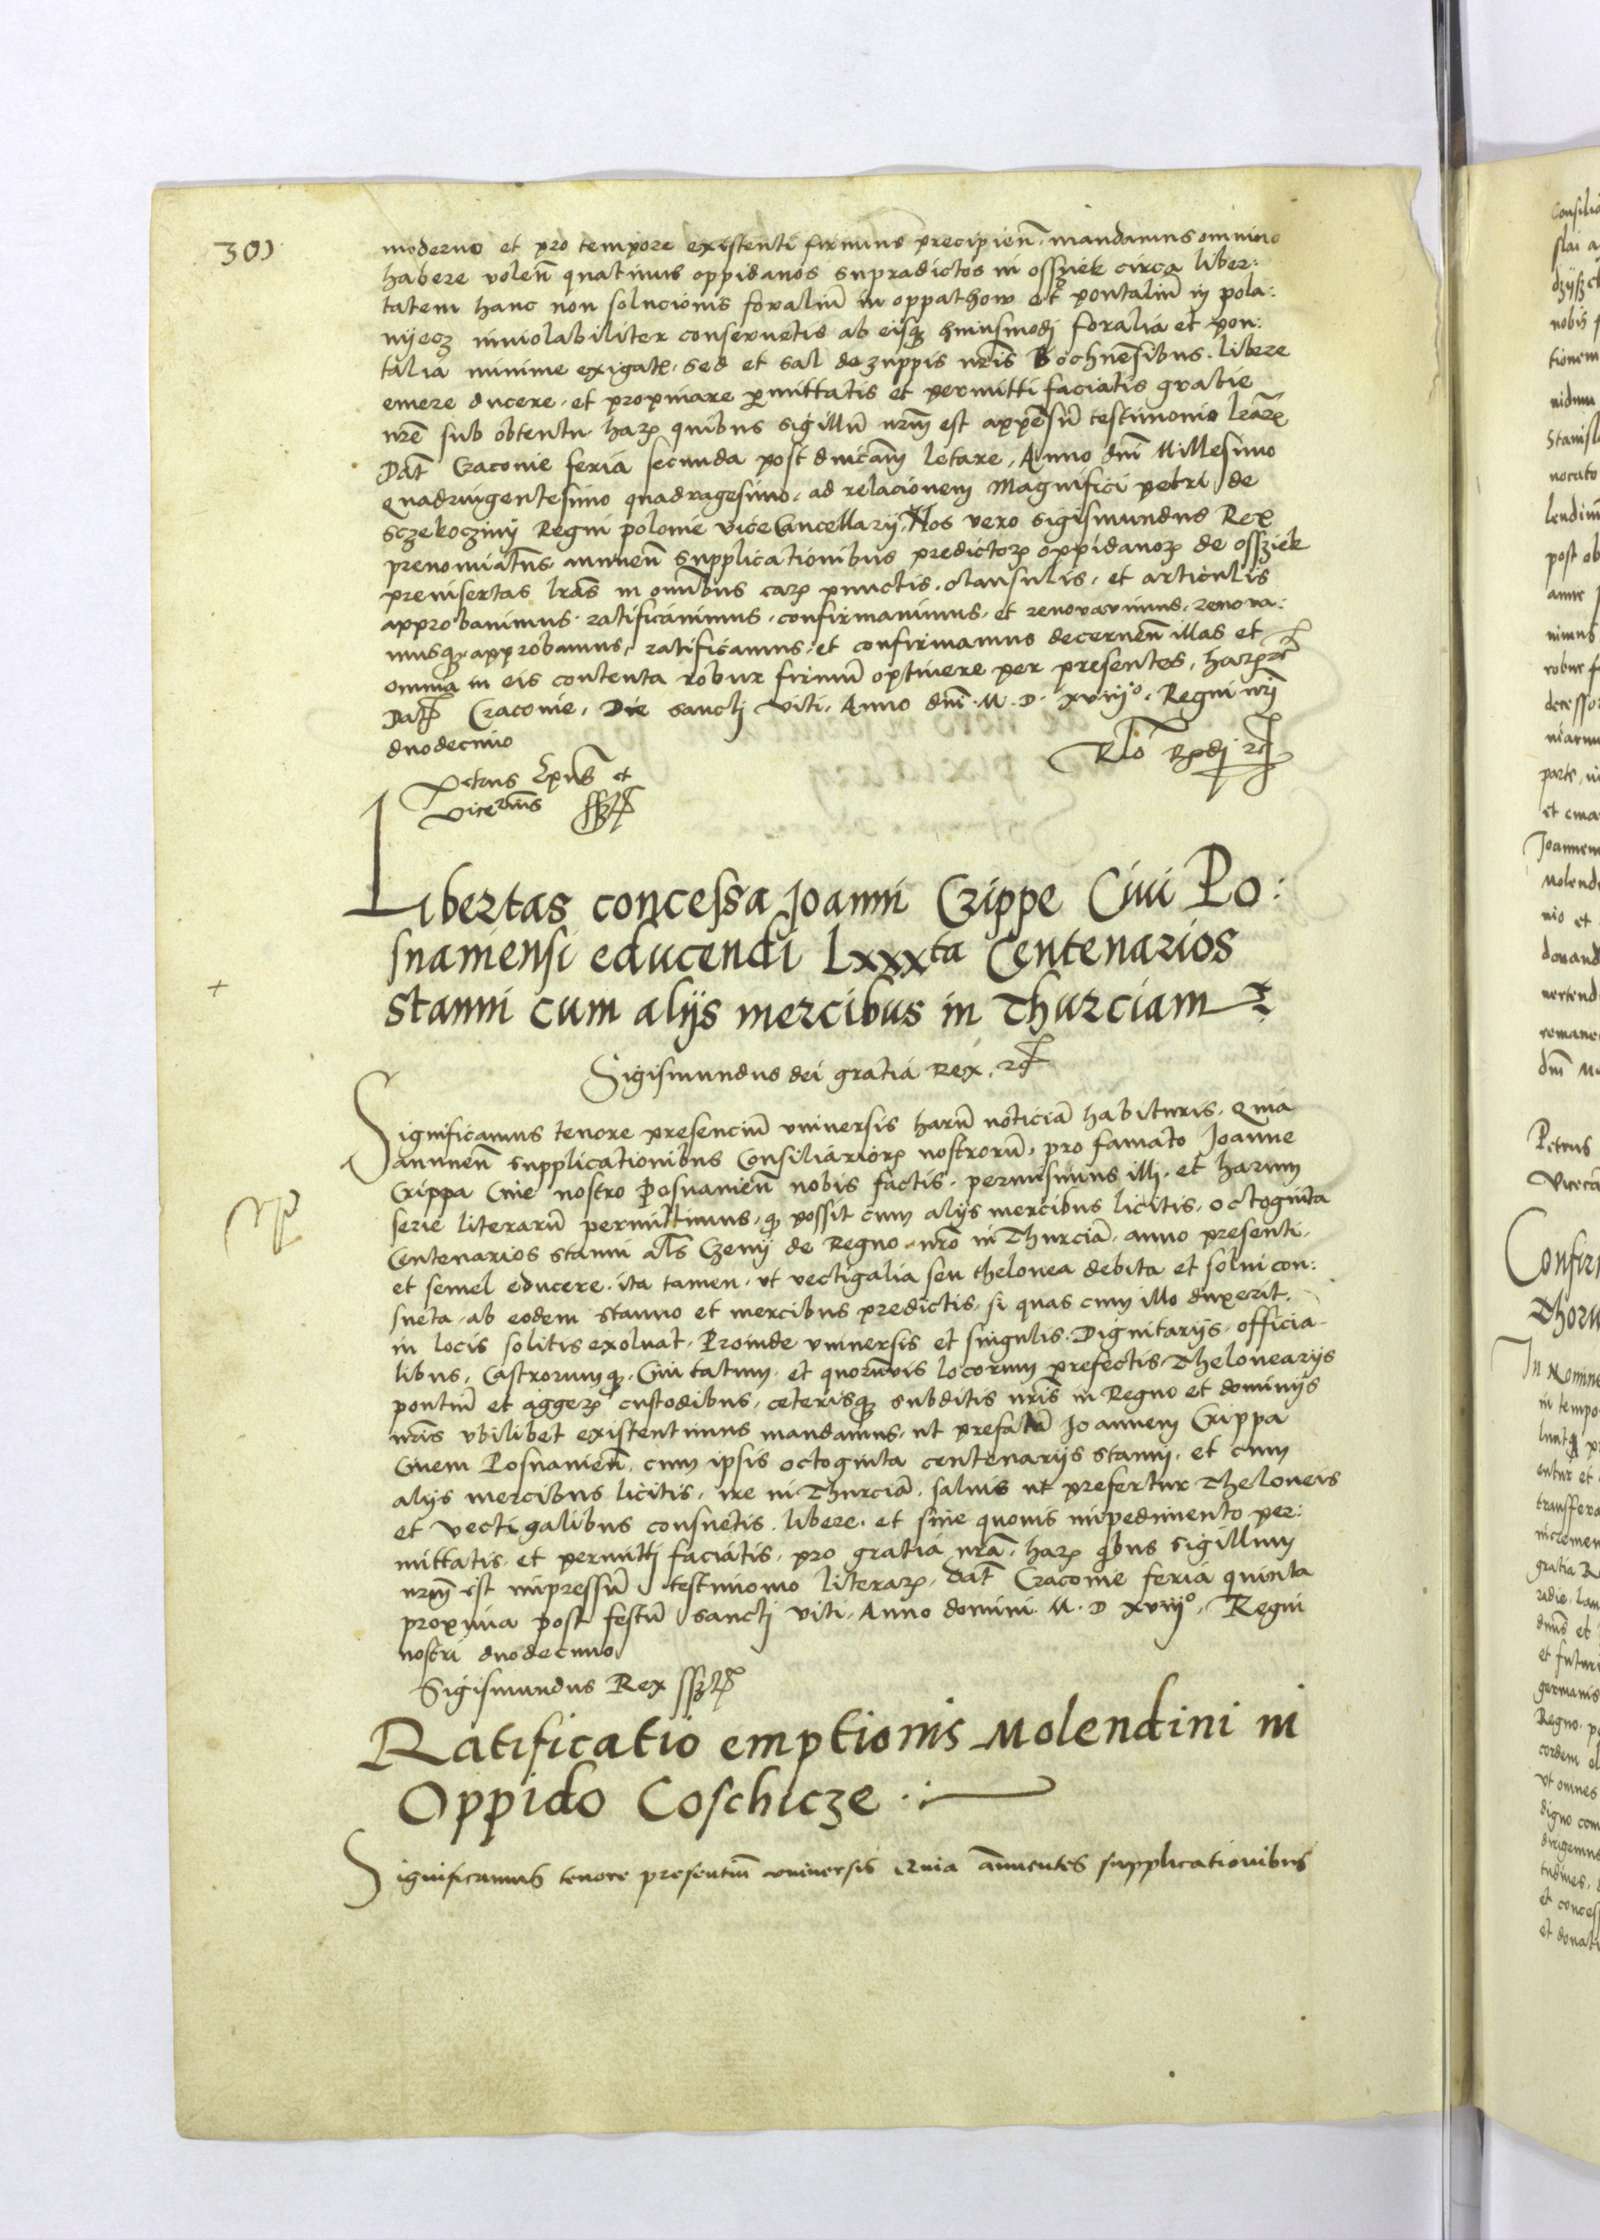 301
moderno et pro tempore existenti firmius precipien̄. mandamus omnino
habere volen̄ quatinus oppidanos supradictos in ossyek circa liber:
tatem hanc non solucionis foraliū in oppathow et pontaliū in pola:
nyecz inviolabiliter conservetis ab eisq̄ huiusmodj foralia et pon:
talia minime exigat̄. sed et sal de zuppis nr̄is Bochnēsibus. libere
emere ducere. et propinare p̱mittatis et permitti faciatis gratie
nr̄e sub obtentu harꝫ quibus sigillū nr̄m est appēsū testimonio lr̄arꝫ
Dat̄ Cracovie feria secunda post dnicām letare, Anno dnī Millesimo
quadringentesimo quadragesimo. ad relacionem Magnifici petri de
sczekocziny Regni polonie viceCancellarij. Nos vero sigismundus Rex
prenoīatus annuen̄ supplicationibus predictorꝫ oppidanorꝫ de ossziek
preinsertas lr̄as in om̄ibus earꝫ punctis. clausulis. et articulis
approbavimus. ratificavimus. confirmavimus. et renovavimus. renova:
musq̄ approbamus, ratificamus. et confirmamus decernen̄ illas et
omnia in eis contenta robur firmū optinere per presentes, harꝫ ꝛc̄
Dat̄ Cracovie, Die sanctj Viti. Anno dnī. M. D. xviijº. Regni nr̄j
duodecimo
Rlō Rp̄dj ꝛc̄
Petrus Ep̄us et
Vicecan̄s sszt
Libertas concessa Joanni Czippe Civi Po:
snaniensi educendi Lxxxta Centenarios
stanni cum alijs mercibus in Thurciam
Sigismundus dei gratia Rex. ꝛc̄
Significamus tenore presenciū universis harū noticiā habituris. Quia
annuen̄ supplicationibus Consiliariorꝫ nostrorū, pro famato Joanne
Crippa Cive nostro Posnanien̄ nobis factis. permisimus illj. et harum
serie literarū permittimus. q̄ possit cum alijs mercibus licitis. octoginta
Centenarios stanni al̄s Czeny de Regno nr̄o in Thurciā. anno presenti.
et semel educere. ita tamen. ut vectigalia seu thelonea debita et solvi con:
sueta. ab eodem stanno et mercibus predictis. si quas cum illo duxerit.
in locis solitis exolvat. Proinde universis et singulis. Dignitarijs. officia-
libus, Castrorumq̄. Civitatum. et quorūvis locorum prefectis. Thelonearijs
pontiū et aggerꝫ custodibus, ceterisq̄ subditis nr̄is in Regno et dominijs
nr̄is ubilibet existentimus mandamus. ut prefatū Joannem Crippa
Civem Posnanien̄. cum ipsis octoginta centenarijs stanni. et cum
alijs mercibus licitis. ire in Thurciā. salvis ut prefertur Theloneis
et vectigalibus consuetis. libere. et sine quovis impedimento per:
mittatis. et permittj faciatis. pro gratia nr̄a. harꝫ q̄bus sigillum
nr̄m est impressū testimonio literarꝫ. Dat̄ Cracovie feria quinta
proxima post festū sanctj viti. Anno domini. M. D xviijº. Regni
nostri duodecimo
Sigismundus Rex sszt
Ratificatio emptionis Molendini in
Oppido Coschicze
Significamus tenore presentiū universis Quia ānuentes supplicationibus